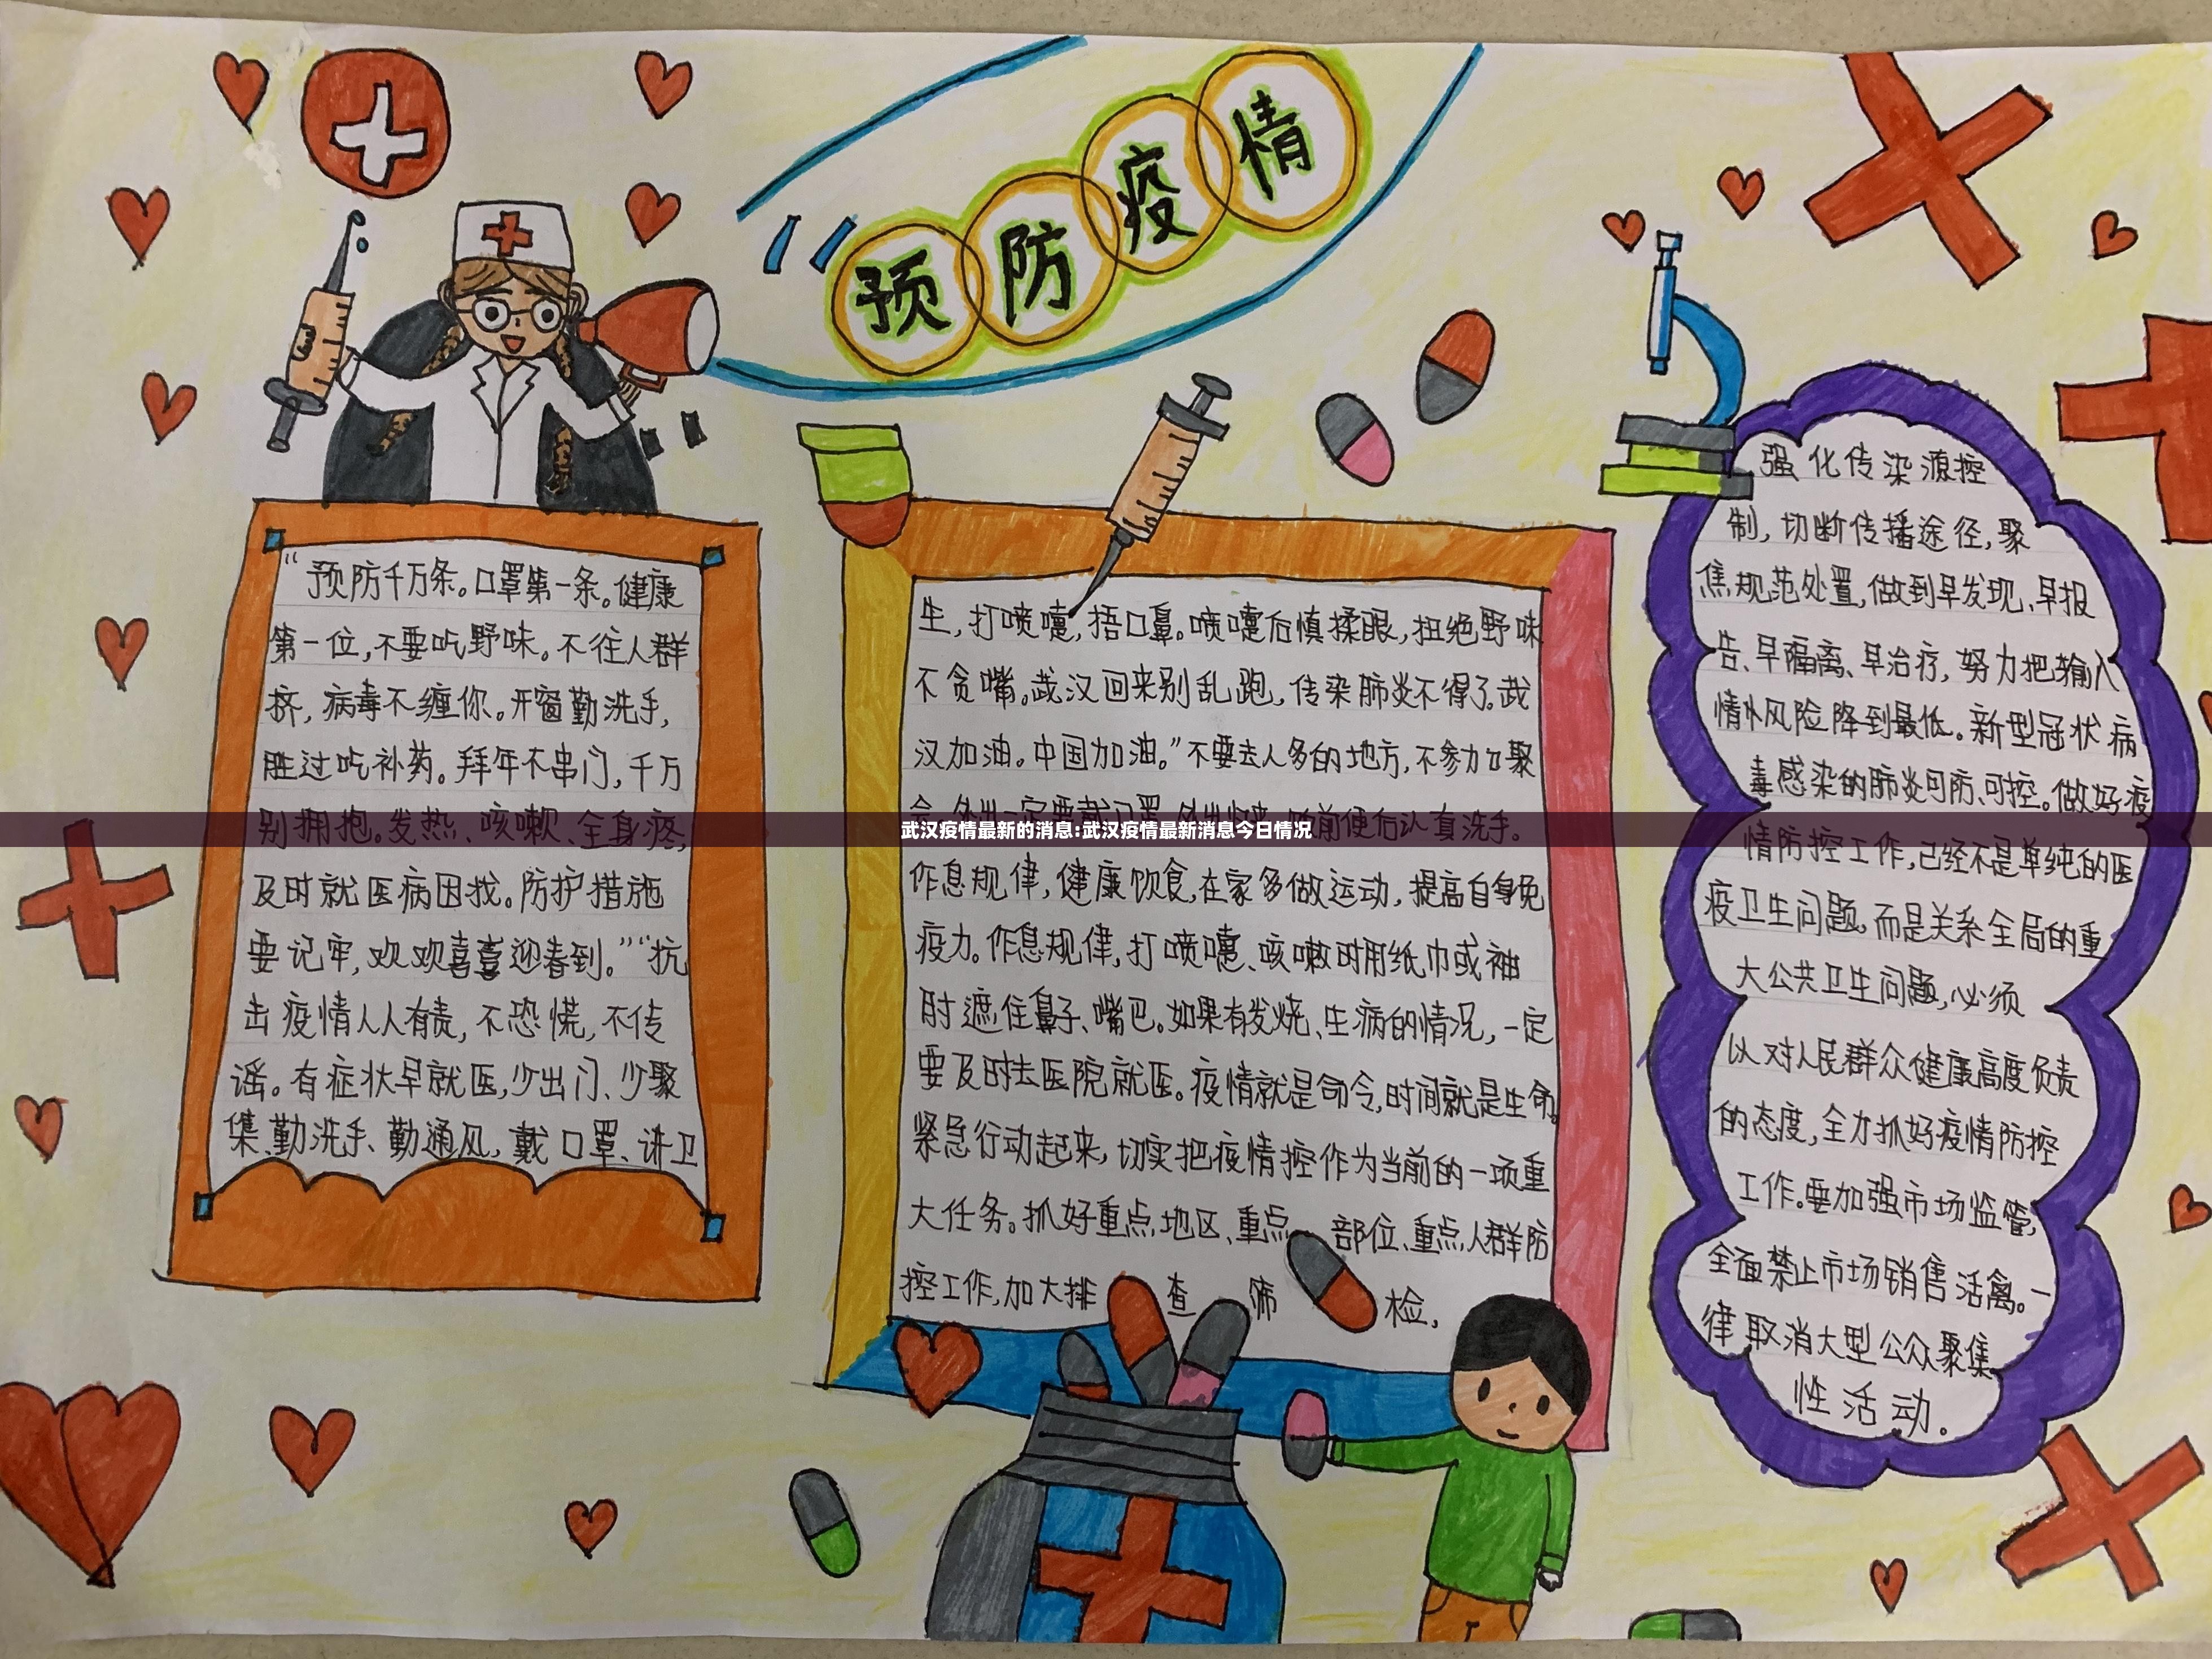 预防疫情
“预防千万条。口罩第一条。健康
第一位,不要吃野味。不往人群
挤,病毒不缠你。开窗勤洗手,
胜过吃补药。拜年不串门,千万
别拥抱。发热、咳嗽、全身疼,
及时就医病因找。防护措施
要记牢,欢欢喜喜迎春到。”“抗
击疫情人人有责,不恐慌,不传
谣。有症状早就医,少出门、少聚
集、勤洗手、勤通风,戴口罩、讲卫
生,打喷嚏,捂口鼻。喷嚏后慎揉眼,扭绝野味
不贪嘴。武汉回来别乱跑,传染肺炎不得了。武
汉加油。中国加油。”不要去人多的地方,不参加聚
会,外出一定要戴口罩,外出归来,饭前便后认真洗手。
作息规律,健康饮食,在家多做运动,提高自身免
疫力。作息规律,打喷嚏、咳嗽时用纸巾或袖
肘遮住鼻子、嘴巴。如果有发烧、生病的情况,一定
要及时去医院就医。疫情就是命令,时间就是生命。
紧急行动起来,切实把疫情控作为当前的一项重
大任务。抓好重点地区、重点部位、重点人群防
控工作,加大排查筛检,
强化传染源控
制,切断传播途径,聚
焦规范处置,做到早发现、早报
告、早隔离、早治疗,努力把输入
情外风险降到最低。新型冠状病
毒感染的肺炎可防、可控。做好疫
情防控工作,己经不是单纯的医
疫卫生问题,而是关系全局的重
大公共卫生问题,必须
以对人民群众健康高度负责
的态度,全力抓好疫情防控
工作。要加强市场监管,
全面禁止市场销售活禽。一
律取消大型公众聚集
性活动.
武汉疫情最新的消息:武汉疫情最新消息今日情况